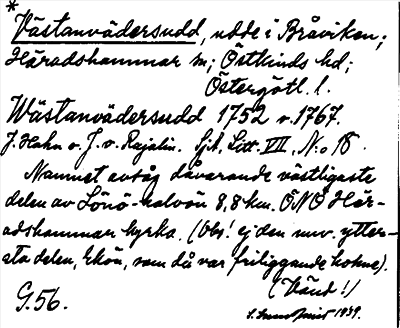 *
Västanvädersudd, udde i Bråviken;
Häradshammar sn; Östkinds hd;
Östergötl. l.
Wästanvädersudd 1752 o. 1767.
J. Hahn o. J. v. Rajalin. Sjk. Litt. VII, N:o 18.
Namnet avsåg dåvarande västligaste
delen av Lönö-halvön 8,8 km. ÖNÖ Här-
adshammar kyrka. (Obs! ej den nuv. ytter-
sta delen, Ekön, som då var friliggande holme).
(Vänd!)
G. 56.
1939.